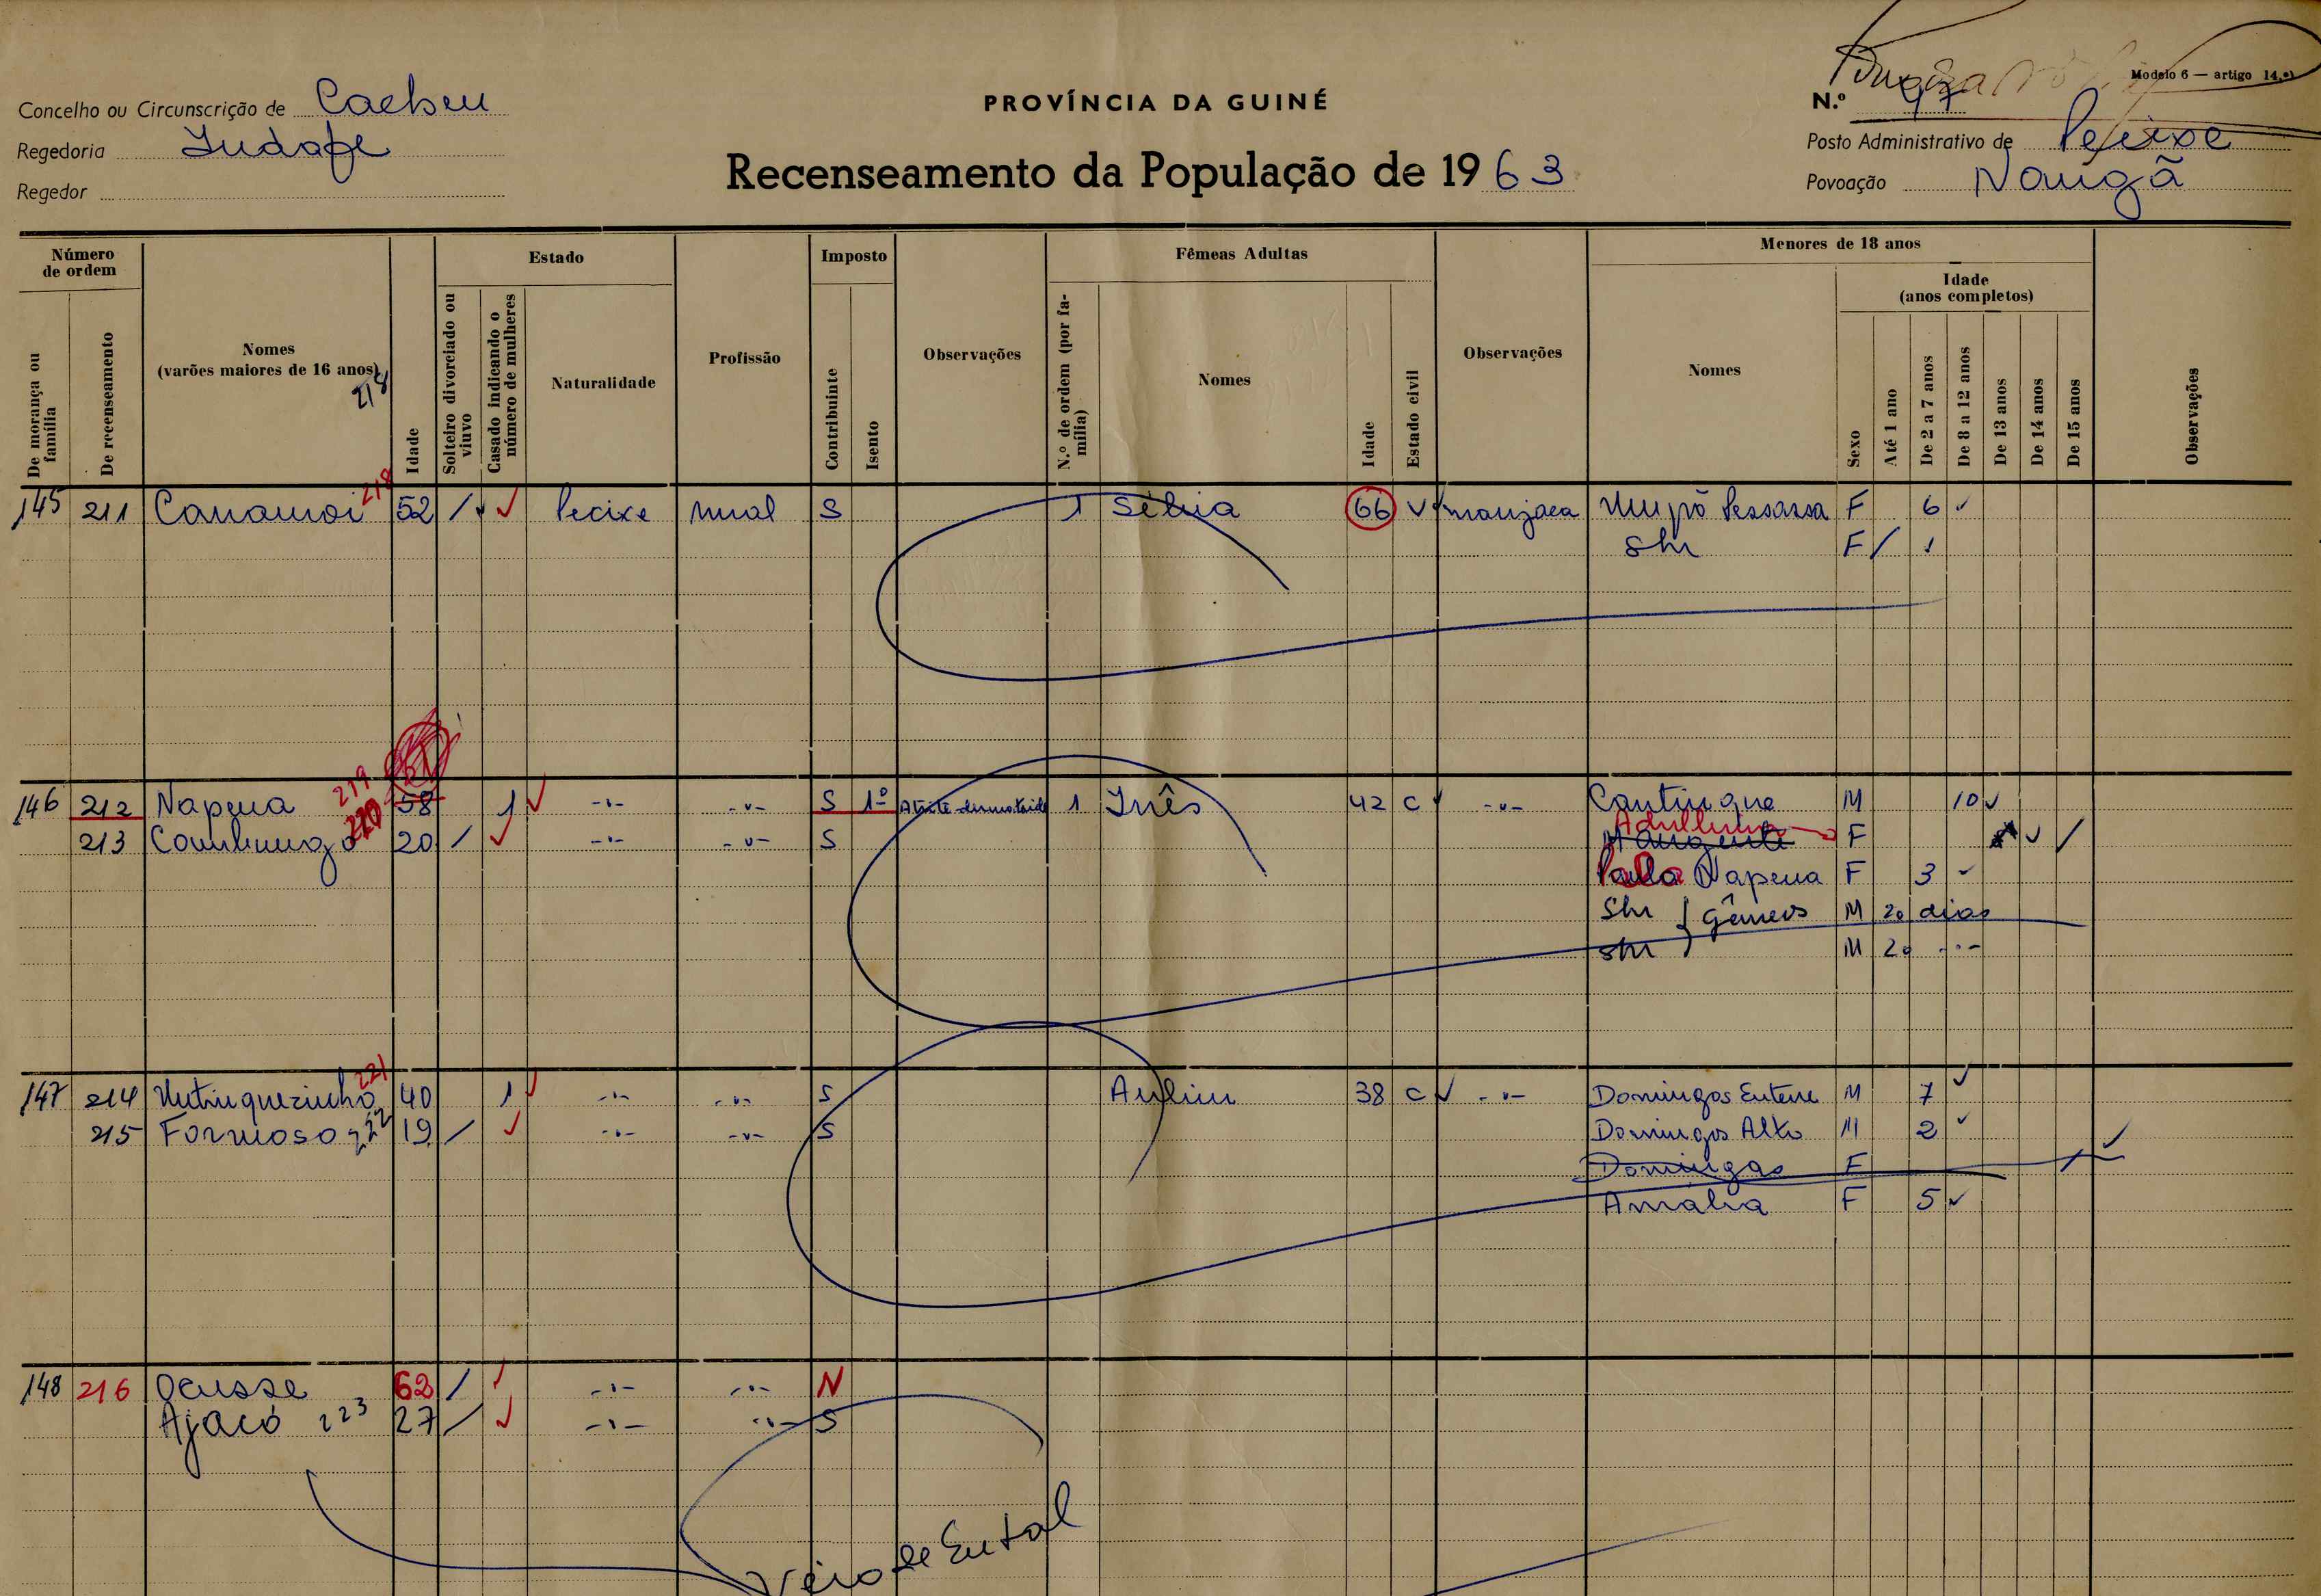 Modelo 6 — artigo 14.º)
Concelho ou Circunscrição de Cacheu
PROVÍNCIA DA GUINÉ
N.º 97
Regedoria
Posto Administrativo de Pecixe
Recenseamento da População de 1963
Regedor
Povoação Nangã
Número de ordem
Estado
Imposto
Fêmeas Adultas
Menores de 18 anos
Idade (anos completos)
De morança ou família
De recenseamento
Nomes (varões maiores de 16 anos)
218
Idade
Solteiro divorciado ou viuvo
Casado indicando o número de mulheres
Naturalidade
Profissão
Contribuinte
Isento
Observações
N.º de ordem (por família)
Nomes
Idade
Estado civil
Observações
Nomes
Sexo
Até 1 ano
De 2 a 7 anos
De 8 a 12 anos
De 13 anos
De 14 anos
De 15 anos
Observações
145 211 218 52 / ✓ Pecixe rural S 1 66 V manjaca F 6 ✓
Shr F / 1
146 212 Napena 219 58 1 ✓ -"- -"- S 1º 1 Inês 42 C ✓ -"- Cantingue M 10 ✓
213 220 20 / ✓ -"- -"- S F ✓ /
Paula Napena F 3 ✓
Shr } Gêmeos M 20 dias
Shr M 20 -"-
147 214 221 40 1 ✓ -"- -"- S 38 C ✓ -"- Domingos M 7 ✓
215 Formoso 222 19 / ✓ -"- -"- S Domingos Alto M 2 ✓
Domingas F / ✓
Amalia F 5 ✓
148 216 Ocusse 62 / ✓ -"- -"- N
Ajacó 223 27 / ✓ -"- -"- S
Veio de